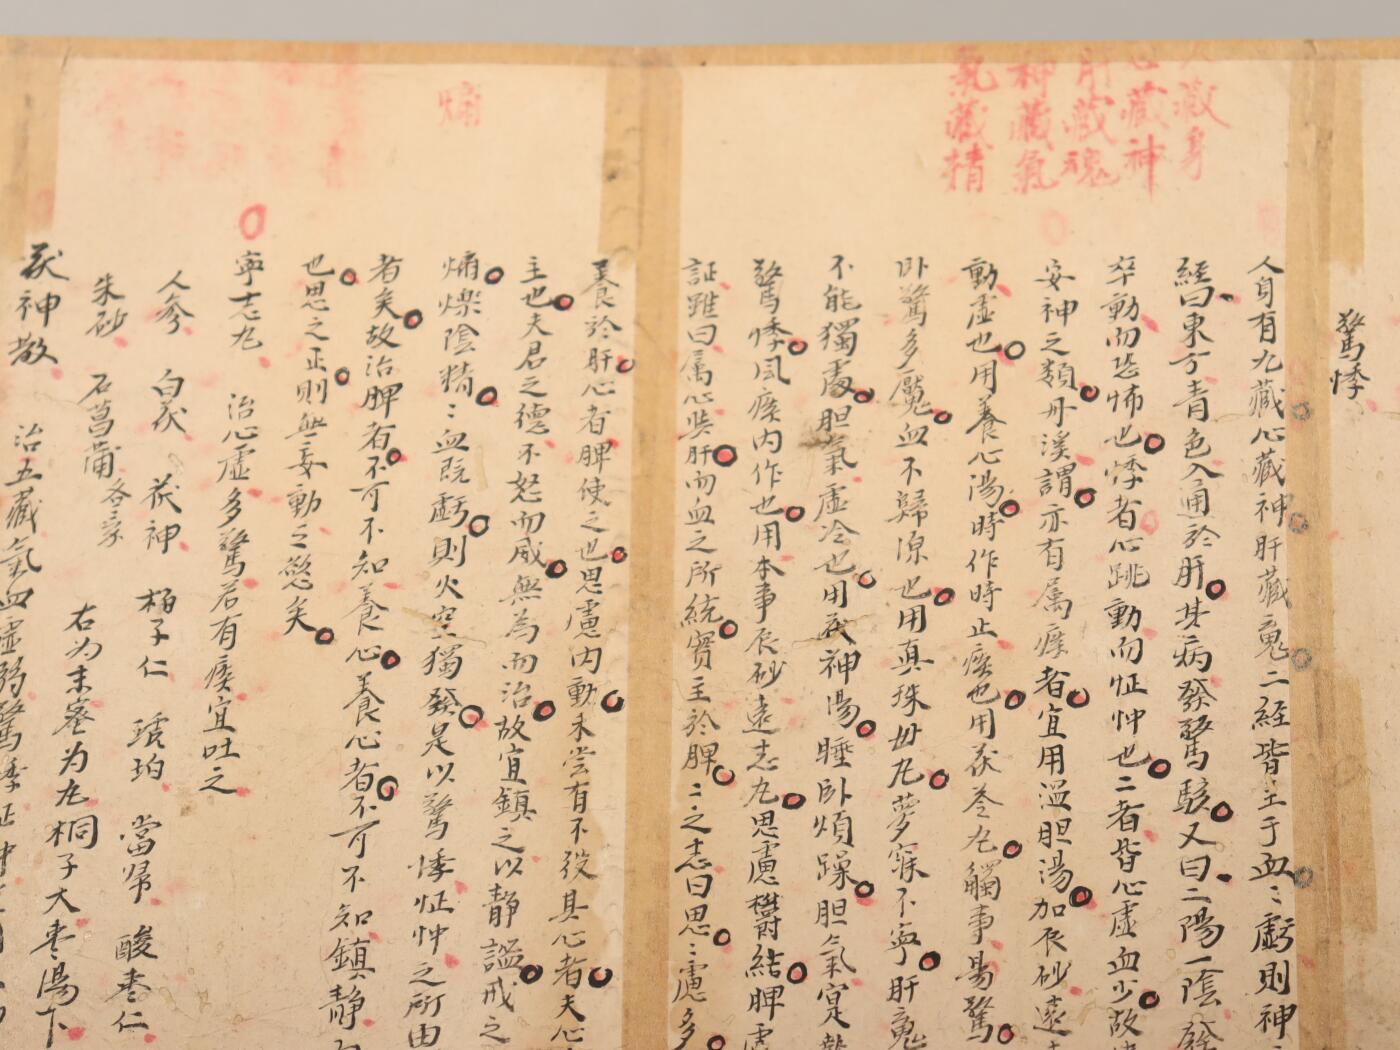 驚悸
人身有九藏心藏神肝藏魂二經皆主于血〻虧則神
經曰東方青色入通於肝其病發驚駭又曰二陽一陰發
卒動而恐怖也悸者心跳動而怔忡也二者皆心虛血少故
安神之類丹溪謂亦有属痰者宜用溫胆湯加辰砂遠
動虛也用養心湯時作時止痰也用茯苓丸觸事易驚
卧驚多魘血不歸源也用真珠毋丸夢寐不寧肝魂
不能獨處胆氣虛冷也用茯神湯睡卧煩躁胆氣寔
驚悸風痰内作也用本事辰砂遠志丸思慮欝結脾虛
証雖曰属心與肝而血之所統實主於脾〻之志曰思〻慮多
養於肝心者脾使之也思慮内動未尝有不役其心者夫心
主也夫君之德不怒而威無為而治故宜鎮之以靜謐戒之
㷌爍陰精〻血既虧則火空獨發是以驚悸怔忡之所由
者矣故治脾者不可不知養心養心者不可不知鎮靜
也思之正則無妄動之慾矣
寧志丸 治心虛多驚若有痰宜吐之
人參 白茯 茯神 柏子仁 琥珀 當帰 酸棗仁
朱砂 石菖蒲各 右为末蜜为丸桐子大棗湯下
茯神散 治五藏氣血虛弱驚悸怔忡
藏身
藏神
肝藏魂
神藏氣
氣藏精